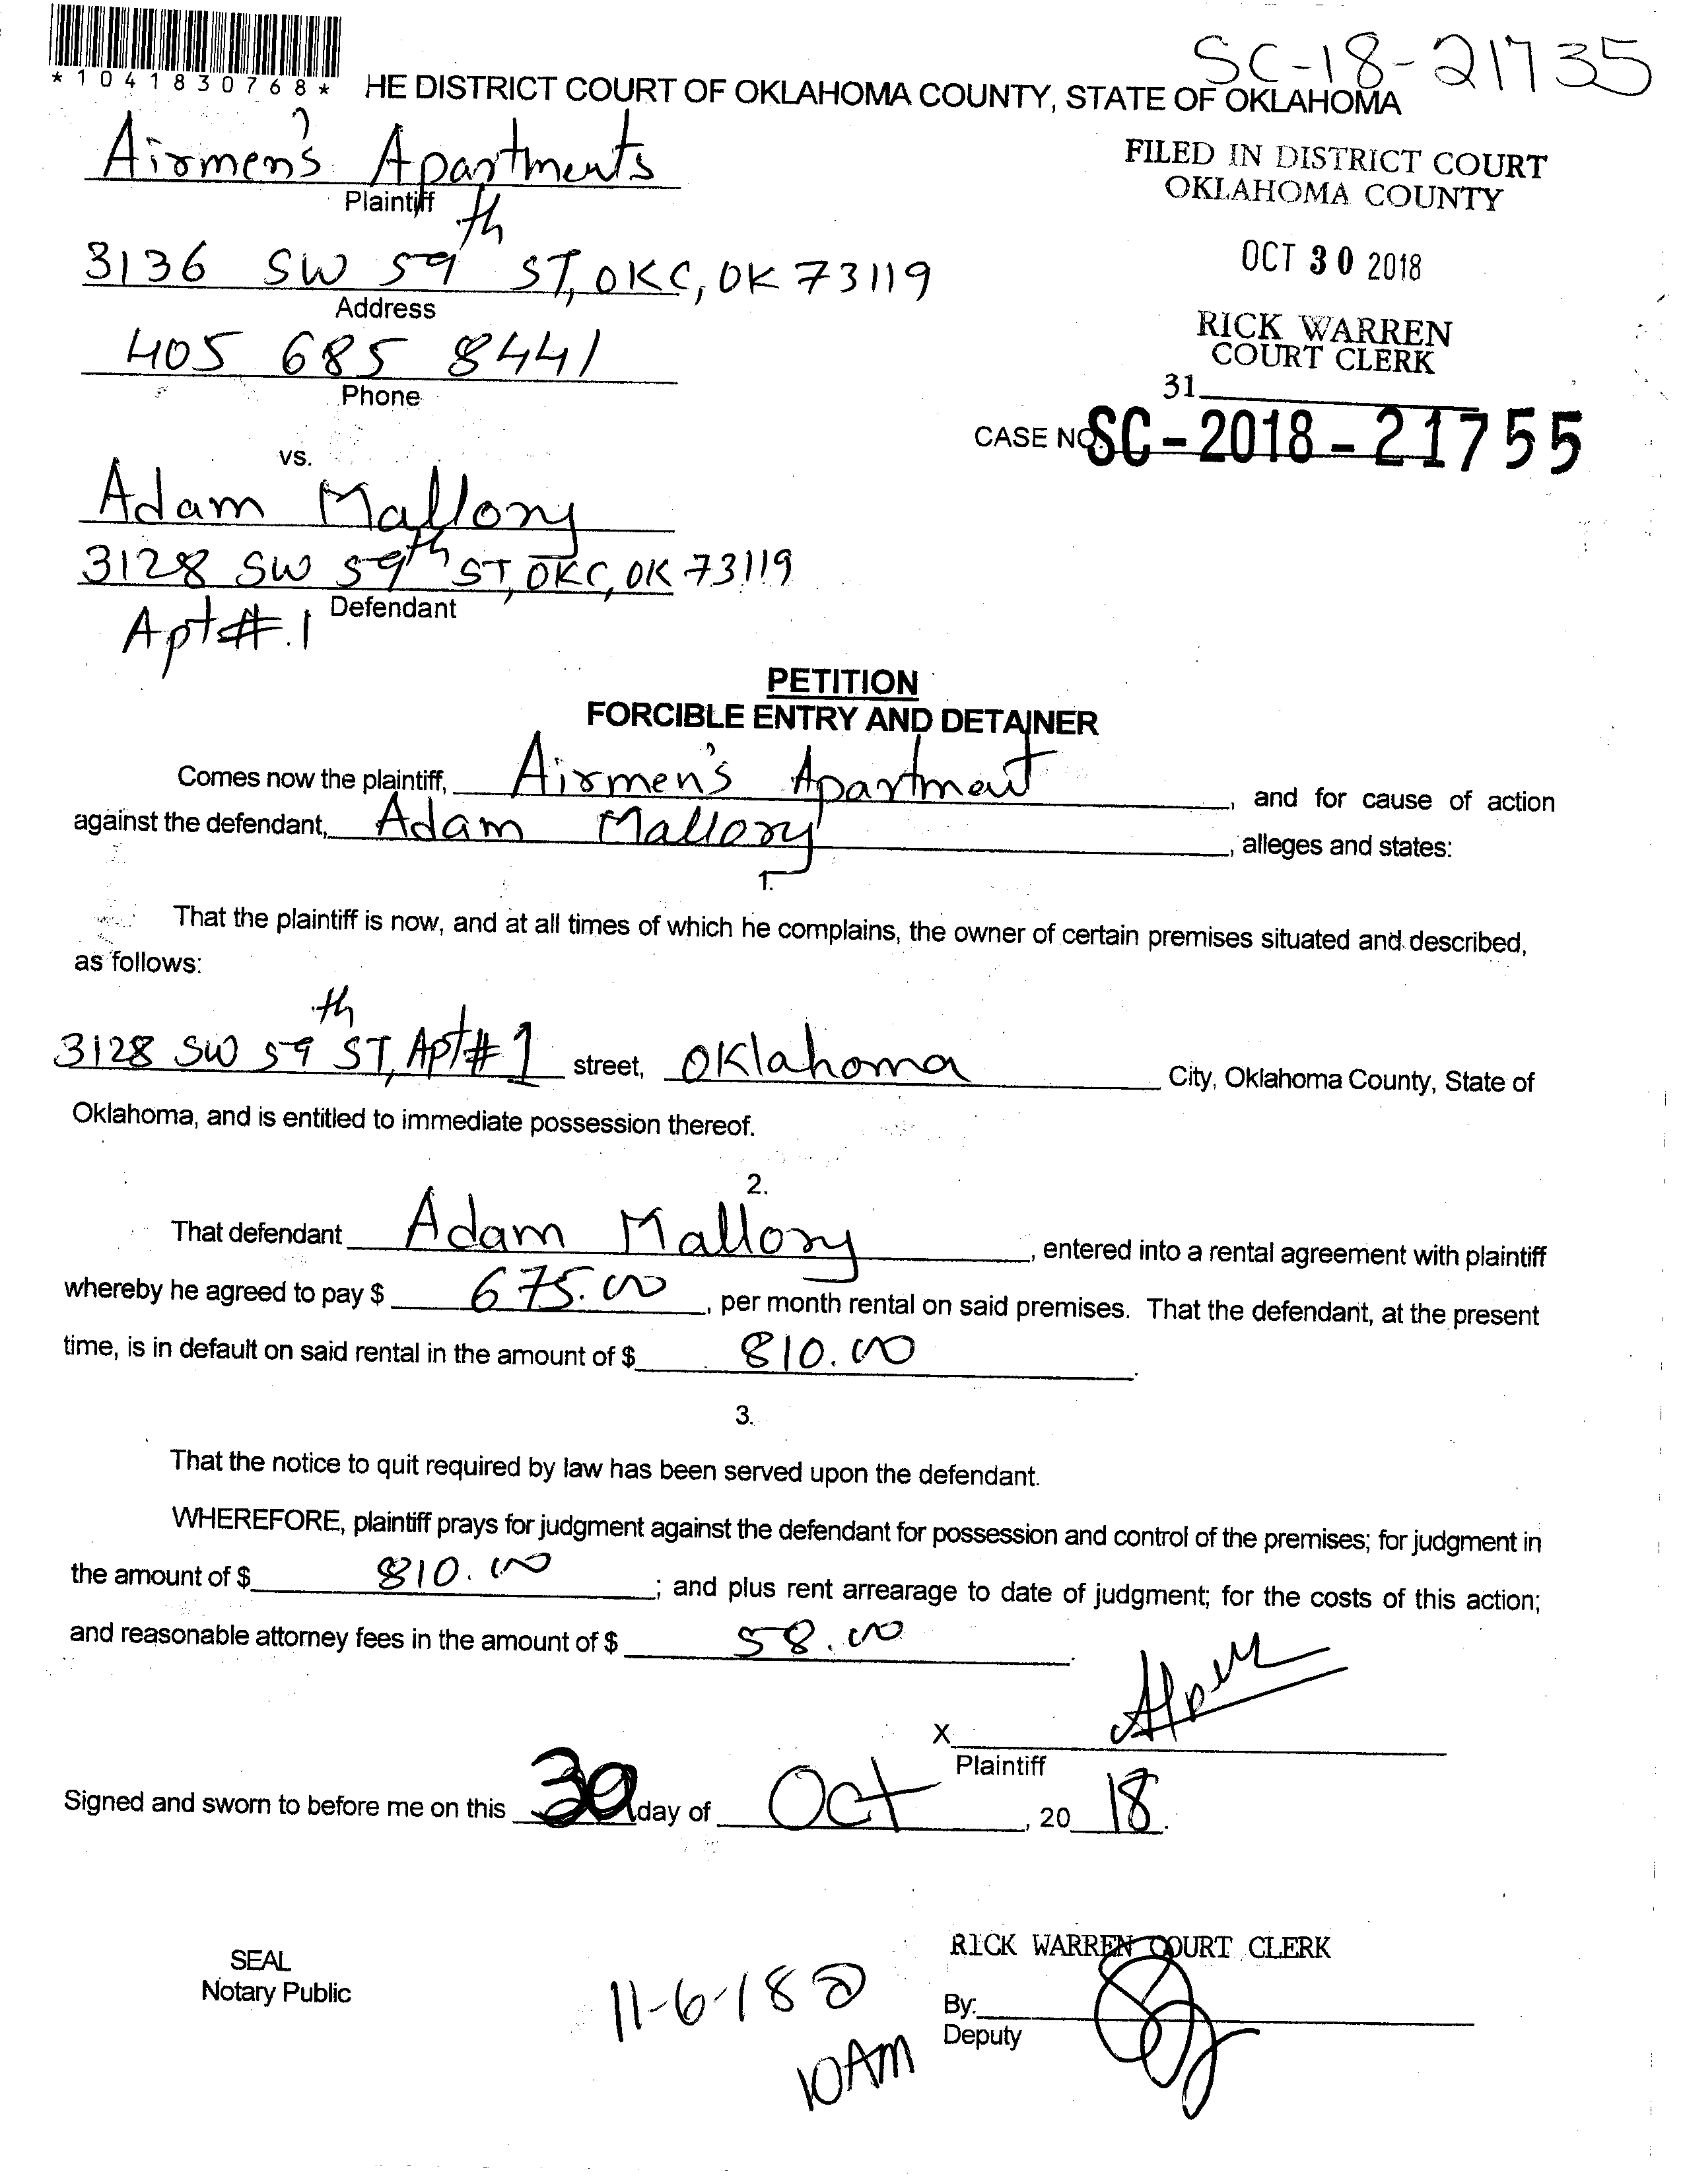 SC-18-21735
*1041830768*
HE DISTRICT COURT OF OKLAHOMA COUNTY, STATE OF OKLAHOMA
Airmen's Apartments
Plaintiff
FILED IN DISTRICT COURT
OKLAHOMA COUNTY
3136 SW 59th ST, OKC, OK 73119
Address
OCT 30 2018
405 685 8441
Phone
RICK WARREN
COURT CLERK
31
CASE NO. SC-2018-21755
vs.
Adam Mallory
3128 SW 59th ST, OKC, OK 73119
Defendant
Apt#.1
PETITION
FORCIBLE ENTRY AND DETAINER
Comes now the plaintiff, Airmen's Apartment, and for cause of action
against the defendant, Adam Mallory, alleges and states:
1.
That the plaintiff is now, and at all times of which he complains, the owner of certain premises situated and described,
as follows:
3128 SW 59th ST, Apt# 1 street, Oklahoma City, Oklahoma County, State of
Oklahoma, and is entitled to immediate possession thereof.
2.
That defendant Adam Mallory, entered into a rental agreement with plaintiff
whereby he agreed to pay $ 675.00, per month rental on said premises. That the defendant, at the present
time, is in default on said rental in the amount of $ 810.00.
3.
That the notice to quit required by law has been served upon the defendant.
WHEREFORE, plaintiff prays for judgment against the defendant for possession and control of the premises; for judgment in
the amount of $ 810.00; and plus rent arrearage to date of judgment; for the costs of this action;
and reasonable attorney fees in the amount of $ 58.00.
X
Plaintiff
Signed and sworn to before me on this 30 day of Oct, 20 18.
RICK WARREN COURT CLERK
SEAL
Notary Public
11-6-18 @
10AM
By:
Deputy